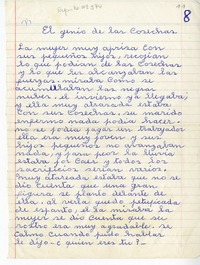 8
El genio de las Cosechas
La mujer muy aprisa con
sus pequeños hijos, recogian
lo que podian de las cosechas
y lo que les alcanzaban las
fuerzas, miraba como se
acumulaban las negras
nubes, el invierno ya llegaba;
y ella muy atrasada estaba
con sus cosechas, su marido
enfermo nada podia hacer-
no se podia pagar un trabajador
ella era muy joven y sus
hijos pequeños no avanzaban
nada, y para peor la lluvia
estaba por caer y todos los
sacrificios serian varios.
Muy atareada estaba que no se
dio cuenta que una gran
figura se planto delante de
ella, al verla quedo petrificada
de espanto, si la miraba la
mujer se dio cuenta que su
rostro era muy agradable. se
calmo cuando pudo hablar
le dijo-¿ quien eres tu?-